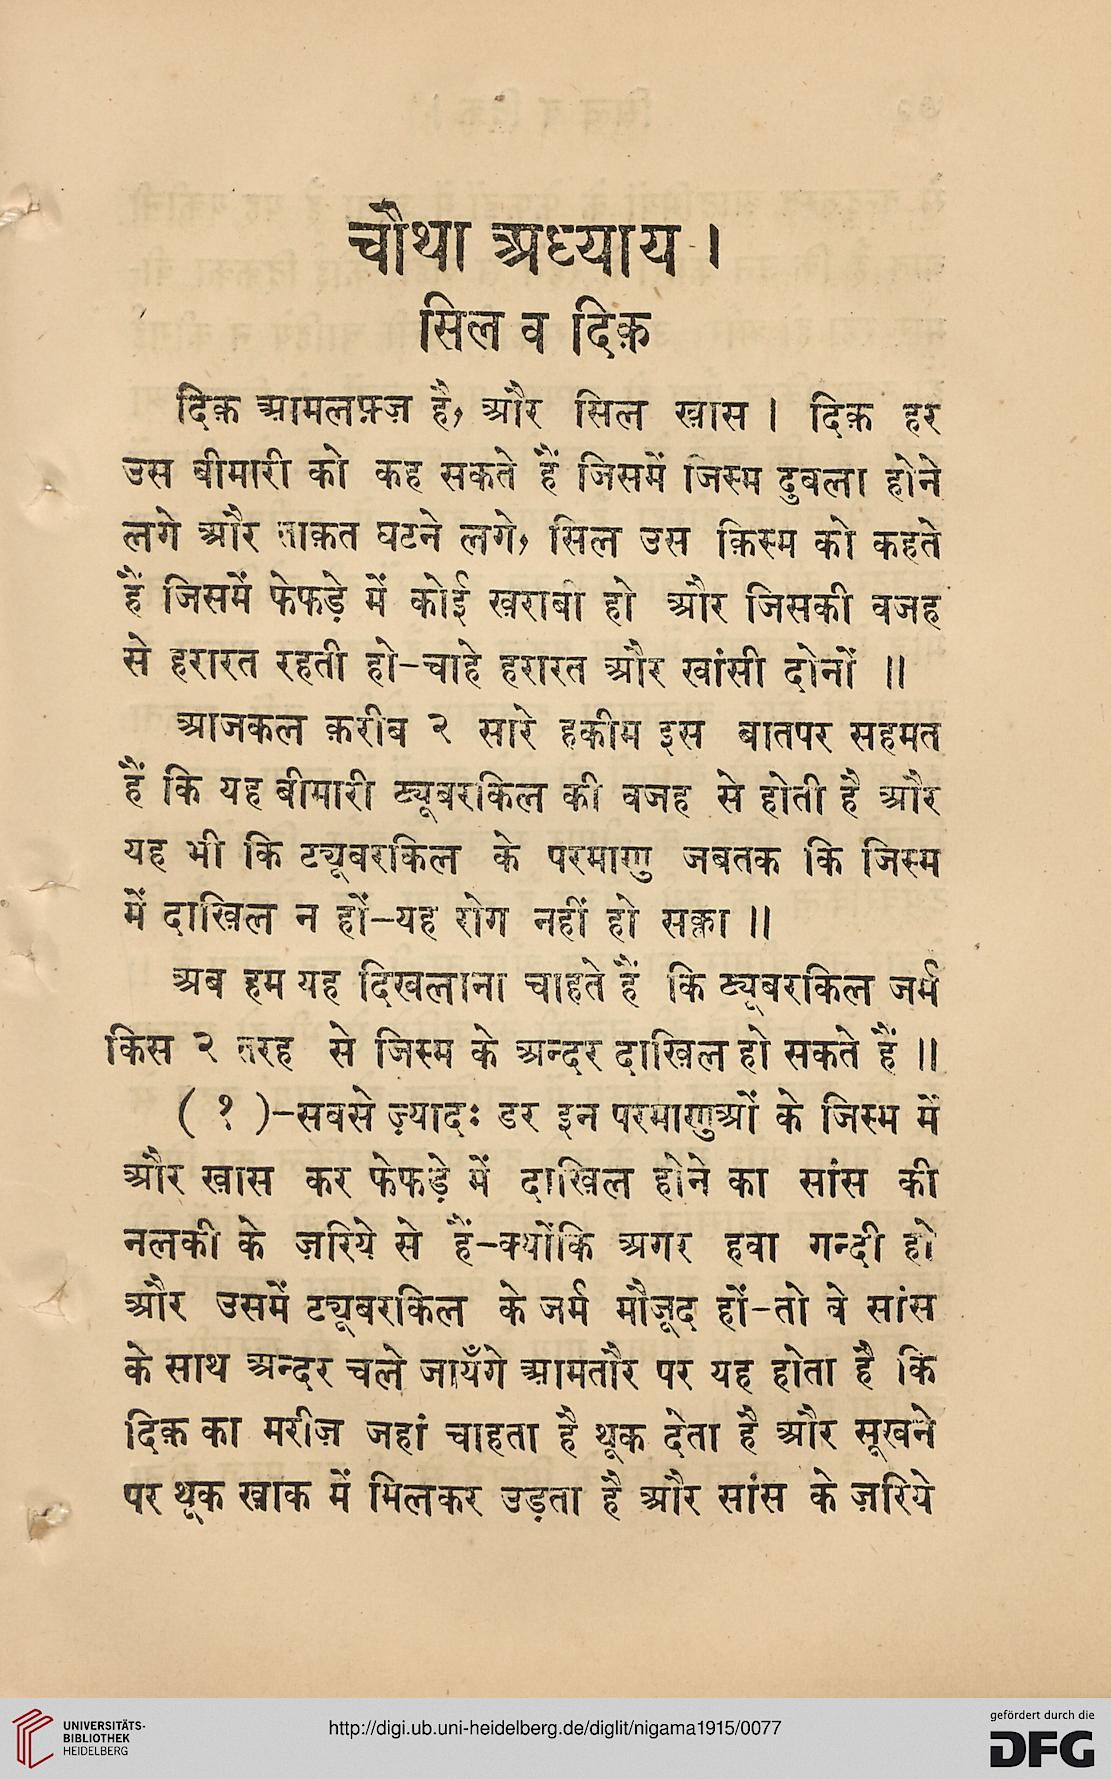 चौथा अध्याय ।
सिल व दिक़
दिक़ आमलफ़्ज़ है, और सिल ख़ास । दिक़ हर
उस बीमारी को कह सकते हैं जिसमें जिस्म दुबला होने
लगे और ताक़त घटने लगे, सिल उस क़िस्म को कहते
हैं जिसमें फेफड़े में कोई ख़राबी हो और जिसकी वजह
से हरारत रहती हो-चाहे हरारत और खांसी दोनों ॥
आजकल क़रीब २ सारे हकीम इस बातपर सहमत
हैं कि यह बीमारी ट्यूबरकिल की वजह से होती है और
यह भी कि ट्यूबरकिल के परमाणु जबतक कि जिस्म
में दाख़िल न हों-यह रोग नहीं हो सक्ता ॥
अब हम यह दिखलाना चाहते हैं कि ट्यूबरकिल जर्म
किस २ तरह से जिस्म के अन्दर दाख़िल हो सकते हैं ॥
( १ )-सबसे ज़्यादः डर इन परमाणुओं के जिस्म में
और ख़ास कर फेफड़े में दाख़िल होने का सांस की
नलकी के ज़रिये से हैं-क्योंकि अगर हवा गन्दी हो
और उसमें ट्यूबरकिल के जर्म मौजूद हों-तो वे सांस
के साथ अन्दर चले जायँगे आमतौर पर यह होता है कि
दिक़ का मरीज़ जहां चाहता है थूक देता है और सूखने
पर थूक ख़ाक में मिलकर उड़ता है और सांस के ज़रिये
UNIVERSITÄTS-
BIBLIOTHEK
HEIDELBERG
http://digi.ub.uni-heidelberg.de/diglit/nigama1915/0077
gefördert durch die
DFG